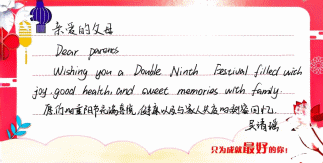 亲爱的父母
Dear parents
Wishing you a Double Ninth Festival filled with
joy, good health, and sweet memories with family.
愿你们重阳节充满喜悦,健康以及与家人共度的甜蜜回忆.
吴靖瑶
只为成就最好的你!